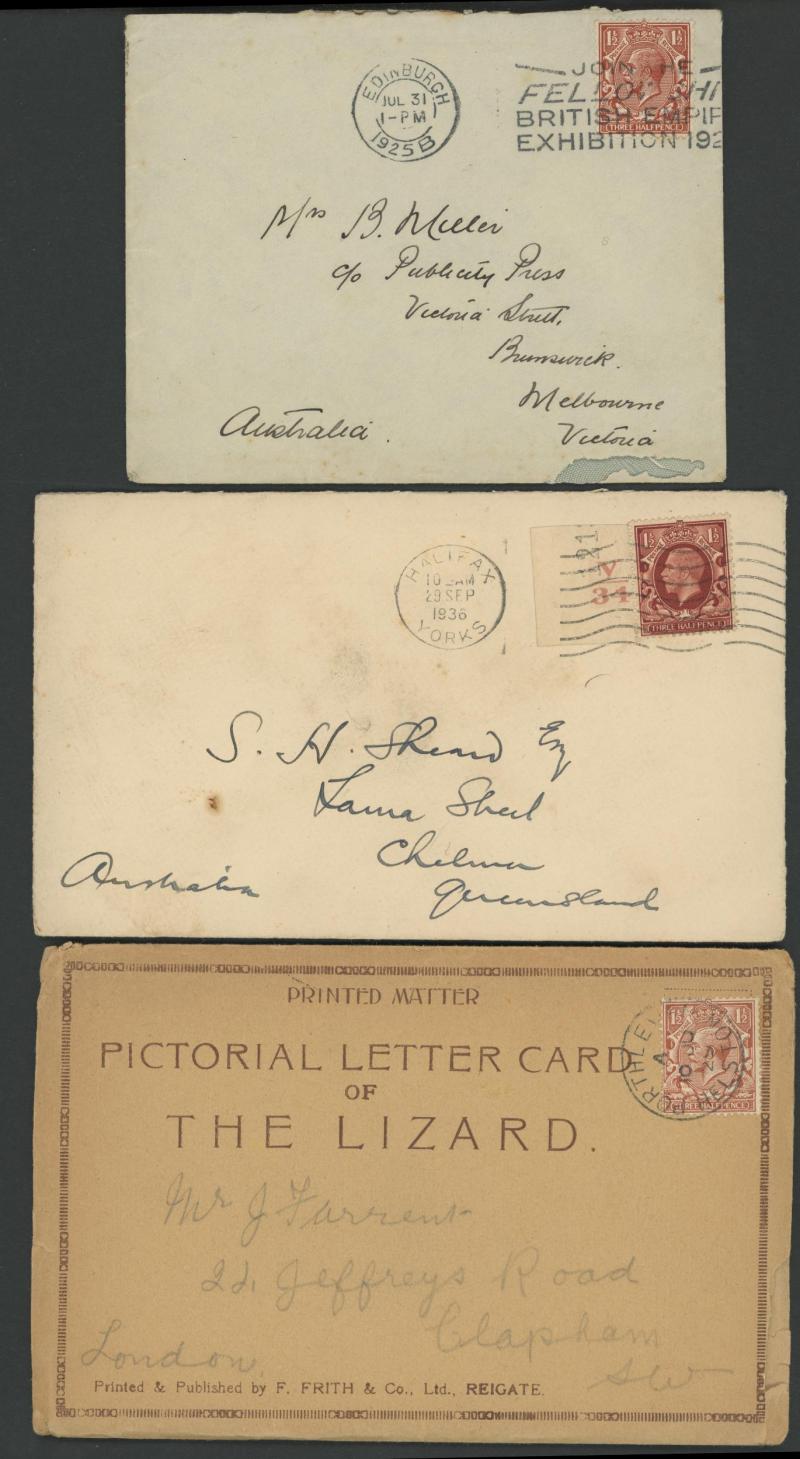 EDINBURGH
JUL 31
1-PM
1925 B
JOIN THE
BRITISH EMPIR
EXHIBITION 192
1½ 1½
THREE HALFPENCE
Mrs B. Miller
c/o Publicity Press
Victoria Street,
Brunswick.
Melbourne
Victoria
Australia.
HALIFAX
29 SEP
1936
YORKS
V
34
1½ 1½
THREE HALFPENCE
S. H. Sheard Esq
Laura Street
Chelmer
Queensland
Australia
PRINTED MATTER
PICTORIAL LETTER CARD
OF
THE LIZARD.
1½ 1½
THREE HALFPENCE
HELSTON
Mr J Farrent
22 Jeffreys Road
Clapham
SW
London
Printed & Published by F. FRITH & Co., Ltd., REIGATE.